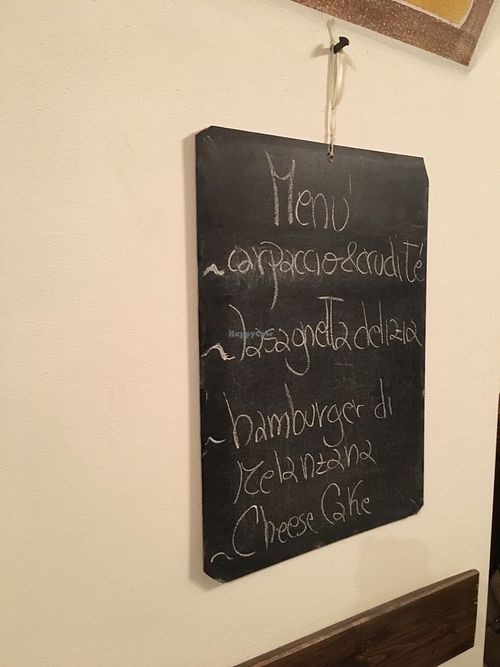 Menu'
~ carpaccio & crudité
~ lasagnetta delizia
HappyCow
~ hamburger di
Melanzana
~ Cheese Cake